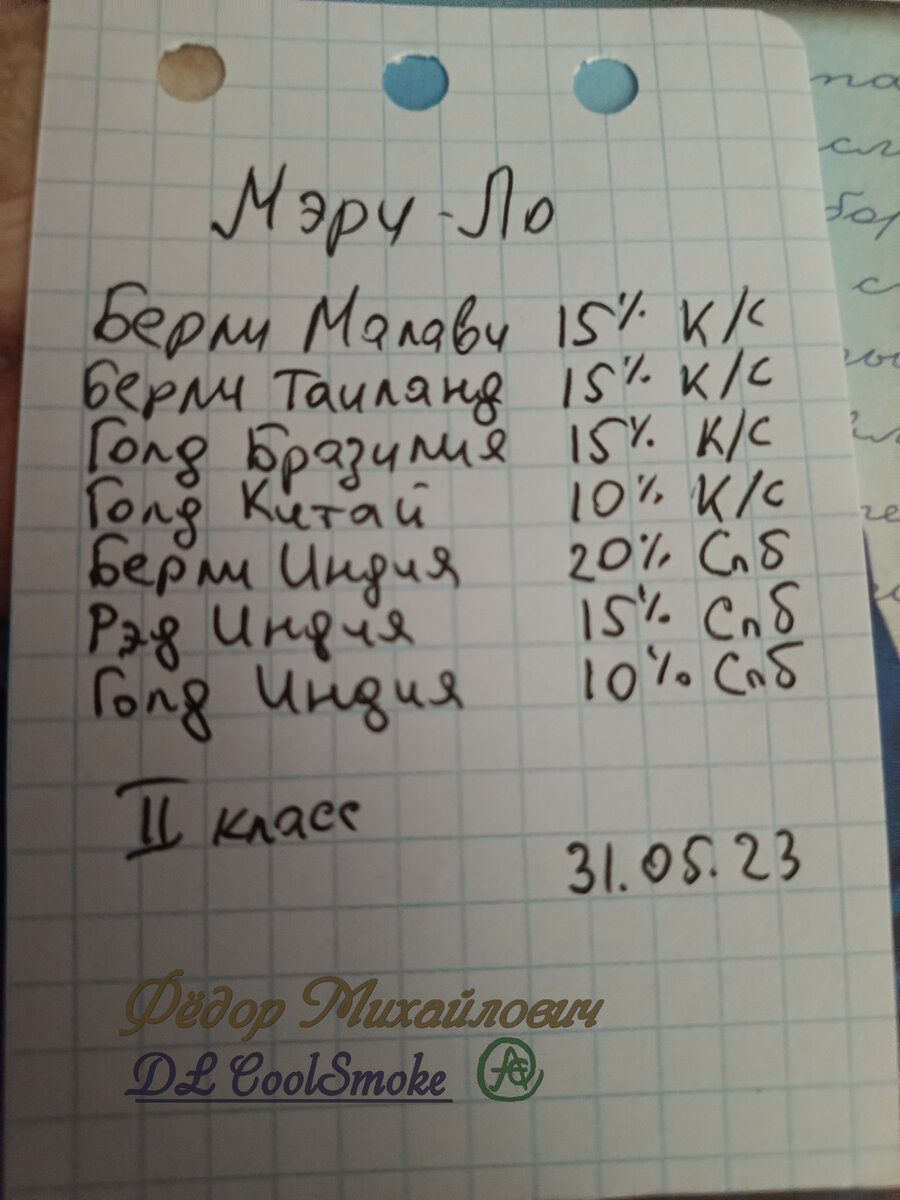 Мэри-Ло
Берли Малави 15% К/С
Берли Таиланд 15% К/С
Голд Бразилия 15% К/С
Голд Китай 10% К/С
Берли Индия 20% Спб
Рэд Индия 15% Спб
Голд Индия 10% Спб
II класс
31.05.23
Фёдор Михайлович
DL CoolSmoke